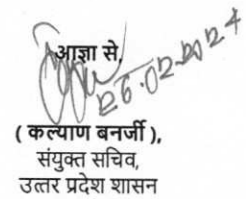 आज्ञा से,
26.02.2024
( कल्याण बनर्जी ),
संयुक्त सचिव,
उत्तर प्रदेश शासन